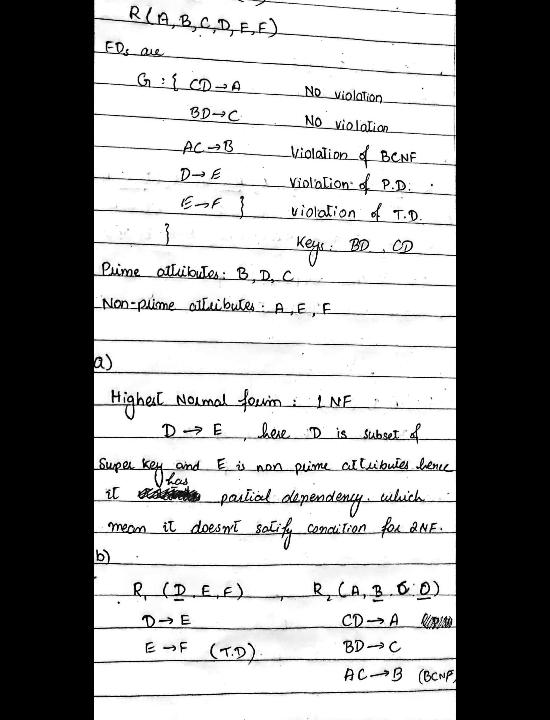 R(A, B, C, D, E, F)
FDs are
G : { CD → A No violation
BD → C No violation
AC → B Violation of BCNF
D → E Violation of P.D.
E → F } violation of T.D.
} Keys: BD, CD
Prime attributes: B, D, C
Non-prime attributes: A, E, F
a)
Highest Normal form : 1NF
D → E , here D is subset of
Super key and E is non prime attributes hence
it has partial dependency. which
mean it doesn't satify condition for 2NF.
b)
R₁ (D, E, F) , R₂ (A, B, C, D)
D → E CD → A
E → F (T.D) BD → C
AC → B (BCNF